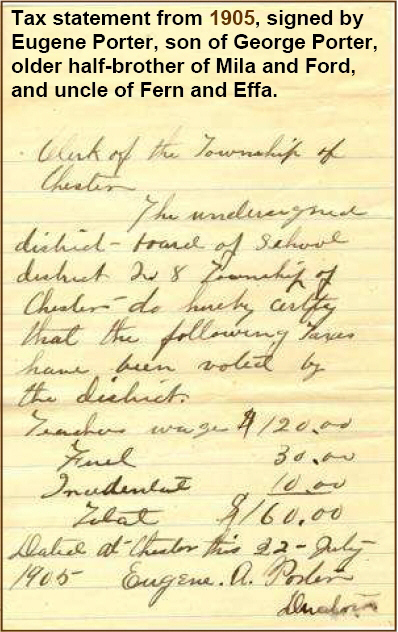 Tax statement from 1905, signed by
Eugene Porter, son of George Porter,
older half-brother of Mila and Ford,
and uncle of Fern and Effa.
Clerk of the Township of
Chester
The undersigned
district board of School
district No 8 Township of
Chester do hereby certify
that the following taxes
have been voted by
the district.
Teachers wages $120.00
Fuel 30.00
Incidental 10.00
Total $160.00
Dated at Chester this 22 - July
1905 Eugene. A. Porter